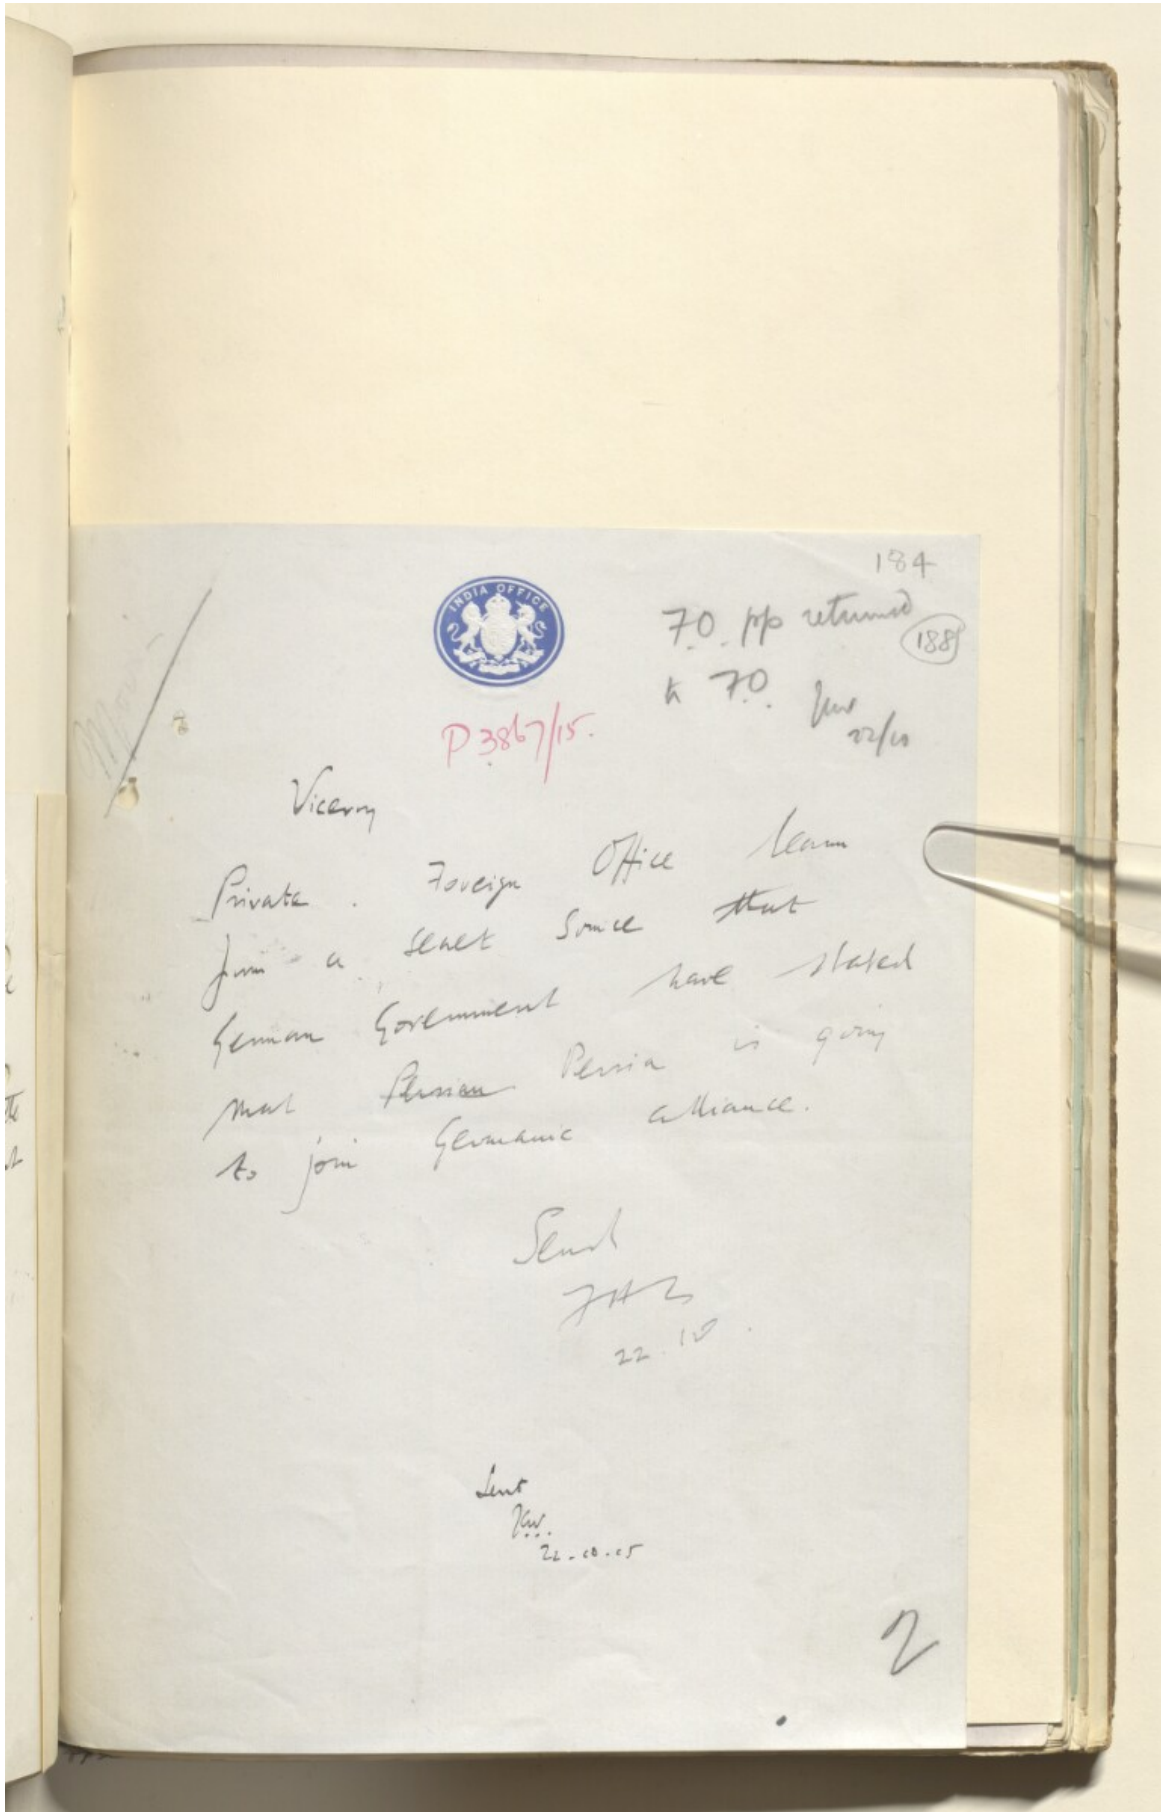 184
INDIA OFFICE
F.O. pp returned
188
to F.O.
22/10
P 3867/15.
Viceroy
Private. Foreign Office learn
from a secret source that
German Government have stated
that Persian Persia is going
to join Germanic alliance.
Send
22.10.
Sent
22.10.15
2